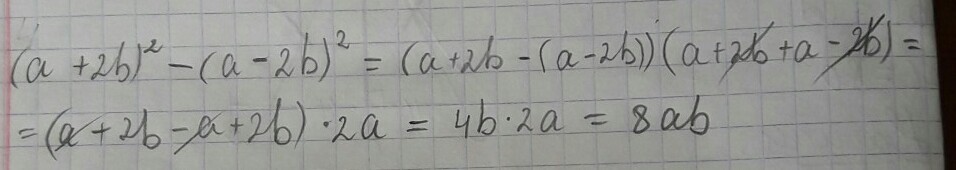 (a + 2b)² - (a - 2b)² = (a + 2b - (a - 2b))(a + 2b + a - 2b) =
= (a + 2b - a + 2b) · 2a = 4b · 2a = 8ab